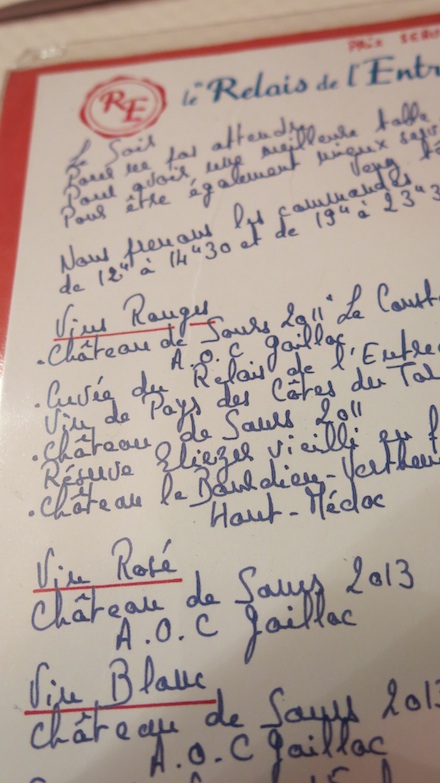 Prix
RE le Relais de l'Entr
Le Soir
Pour ne pas attendre
Pour avoir une meilleure table
Pour être également mieux servi
Nous prenons les commandes
de 12H à 14H30 et de 19H à 23H3
Vins Rouges
• Château de Saurs 2011 "La Const
A.O.C Gaillac
• Cuvée du Relais de l'Entre
Vin de Pays des Côtes du Tar
• Château de Saurs 2011
Réserve Eliezer vieilli en f
• Château le Bourdieu-Vertheui
Haut-Médoc
Vin Rosé
Château de Saurs 2013
A.O.C Gaillac
Vin Blanc
Château de Saurs 2013
A.O.C Gaillac